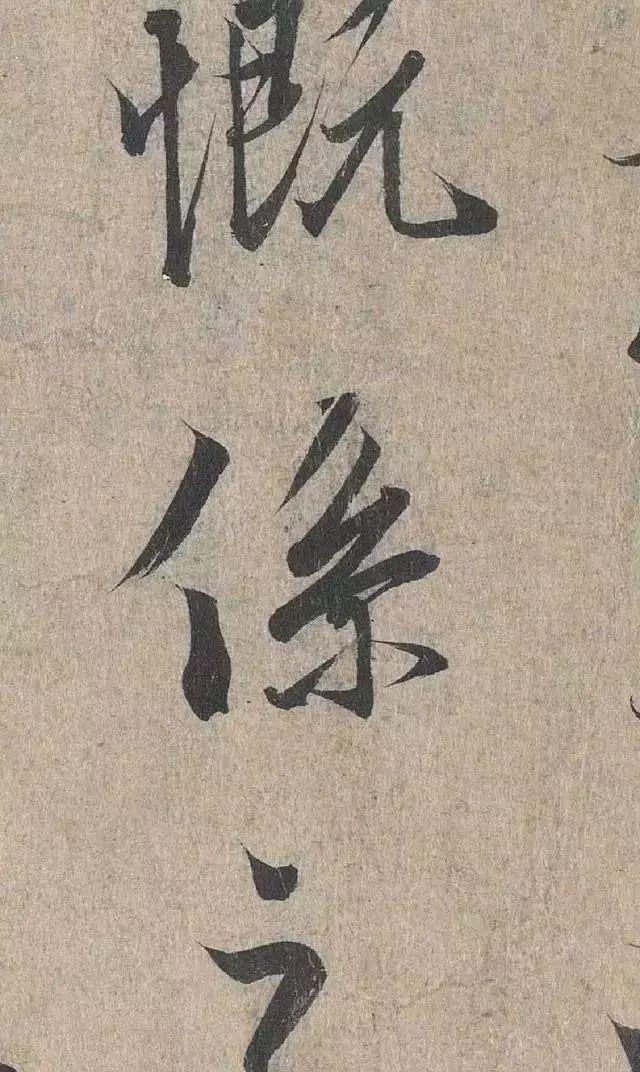 慨係之